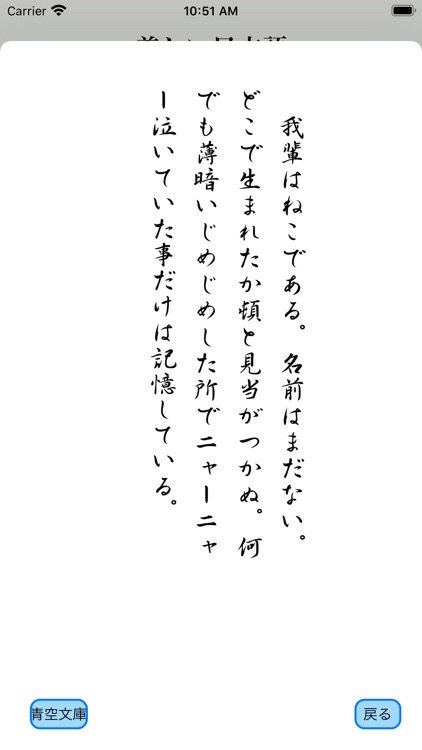 Carrier 10:51 AM
我輩はねこである。名前はまだない。
どこで生まれたか頓と見当がつかぬ。何
でも薄暗いじめじめした所でニャーニャ
ー泣いていた事だけは記憶している。
青空文庫
戻る